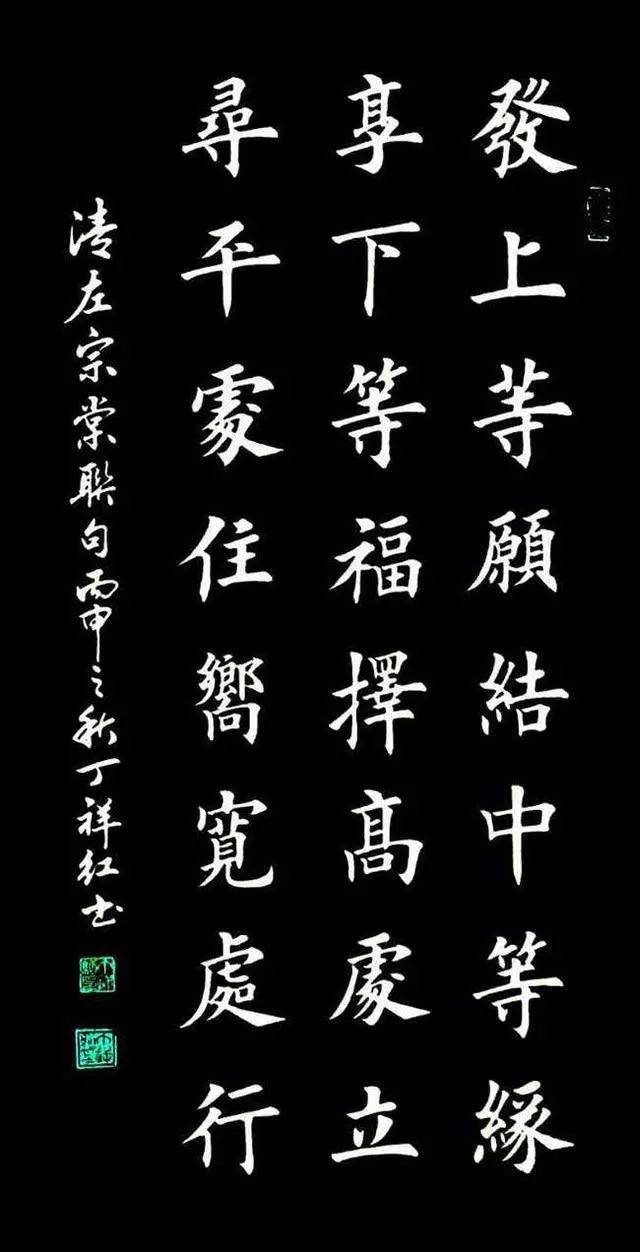 發上等願結中等緣
享下等福擇高處立
尋平處住嚮寬處行
清左宗棠聯句丙申之秋丁祥紅書